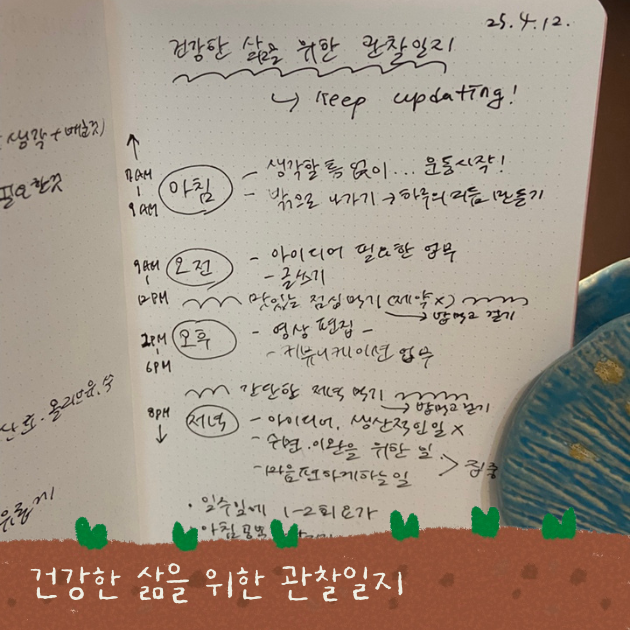 25.4.12.
건강한 삶을 위한 관찰일지
↳ Keep updating!
생각 + 배출
필요한것
7AM
9AM
아침
- 생각할 틈 없이... 운동시작!
- 밖으로 나가기 → 하루의 리듬 만들기
9AM
12PM
오전
- 아이디어 필요한 업무
- 글쓰기
맛있는 점심 먹기 (제약X)
→ 밥먹고 걷기
2PM
6PM
오후
- 영상 편집 -
- 커뮤니케이션 업무
간단한 저녁 먹기
→ 밥먹고 걷기
8PM
저녁
- 아이디어, 생산적인일 X
- 수면, 이완을 위한 일
- 마음편하게하는일
> 집중
· 일주일에 1-2회 요가
· 아침 공복
건강한 삶을 위한 관찰일지